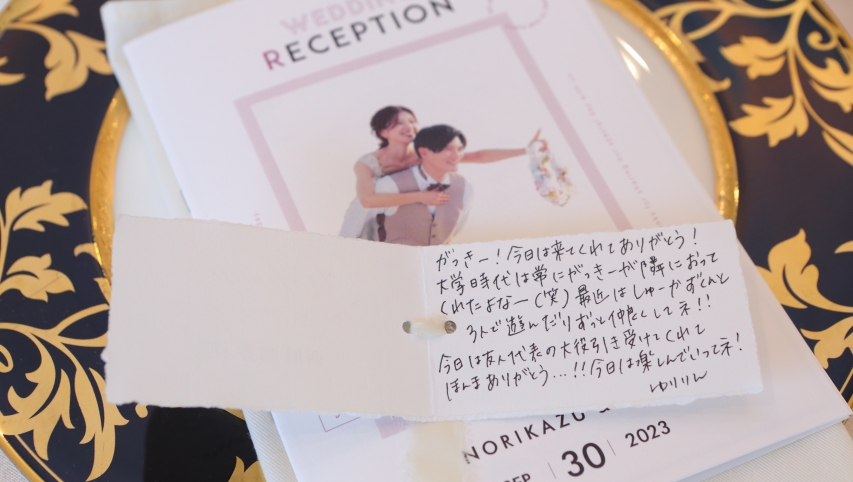 WEDDING
RECEPTION
がっきー！今日は来てくれてありがとう！
大学時代は常にがっきーが隣におって
くれたよなー（笑）最近はしゅーかずくんと
3人で遊んだりずっと仲良くしてネ！！
今日は友人代表の大役引き受けてくれて
ほんまありがとう…!!今日は楽しんでいってネ！
ゆりりん
NORIKAZU &
SEP | 30 | 2023